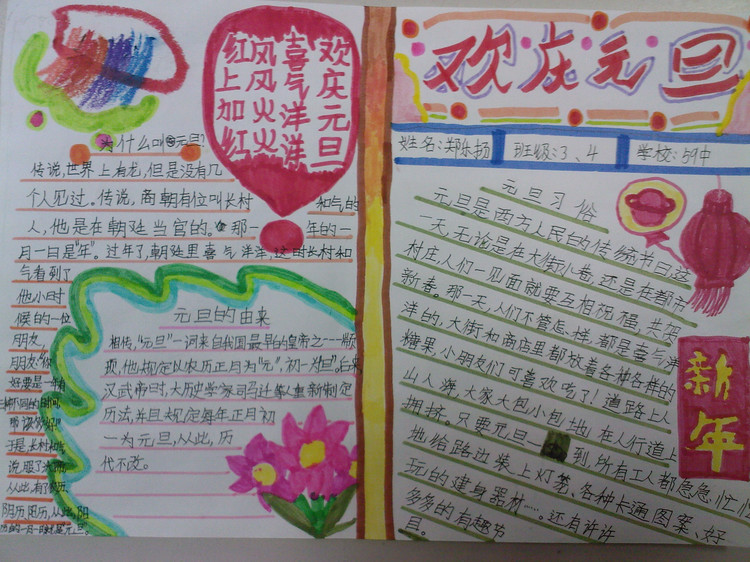 欢庆元旦
喜气洋洋
风风火火
红上加红
为什么叫元旦?
传说,世界上有龙,但是没有几
个人见过。传说,商朝有位叫长村
和气的
人,他是在朝廷当官的。那一
年的一
月一日是“年”。过年了,朝廷里喜气洋洋,这时长村和
气看到了
他小时
候的一位
朋友,
从此,有了阳历
阴历
元旦的由来
相传,“元旦”一词来自我国最早的皇帝之一颛
顼,他规定以农历正月为“元”,初一为“旦”。后来
汉武帝时,大历史学家司马迁等人重新制定
历法,并且规定每年正月初
一为元旦,从此,历
代不改。
欢庆元旦
姓名:郑乐扬 班级:3、4 学校:59中
元旦习俗
元旦是西方人民的传统节日这
一天,无论是在大街小巷,还是在都市
村庄,人们一见面就要互相祝福,共贺
新春。那一天,人们不管怎样,都是喜气洋
洋的,大街和商店里都放着各种各样的
糖果,小朋友们可喜欢吃了!道路上人
山人海,大家大包小包地,在人行道上
拥挤。只要元旦一到,所有工人都急急忙忙
地给路边装上灯笼、各种卡通图案、好
玩的建身器材……。还有许许
多多的有趣节
目。
新年